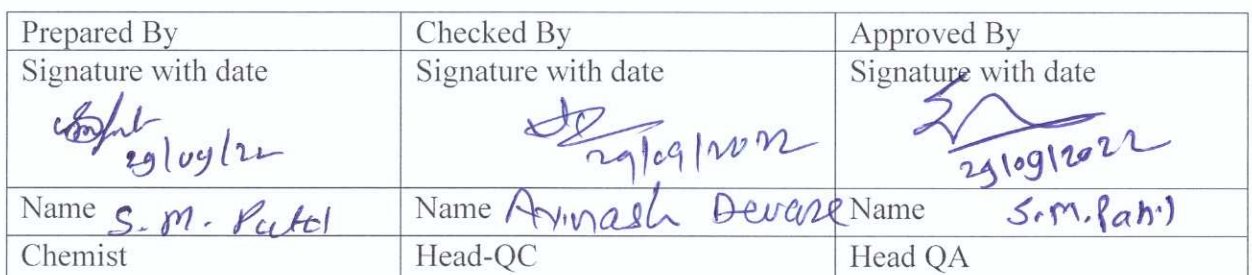 Prepared By Checked By Approved By
Signature with date Signature with date Signature with date
29/09/22 29/09/2022 29/09/2022
Name S. M. Patel Name Avinash Devare Name S.M. Patil
Chemist Head-QC Head QA